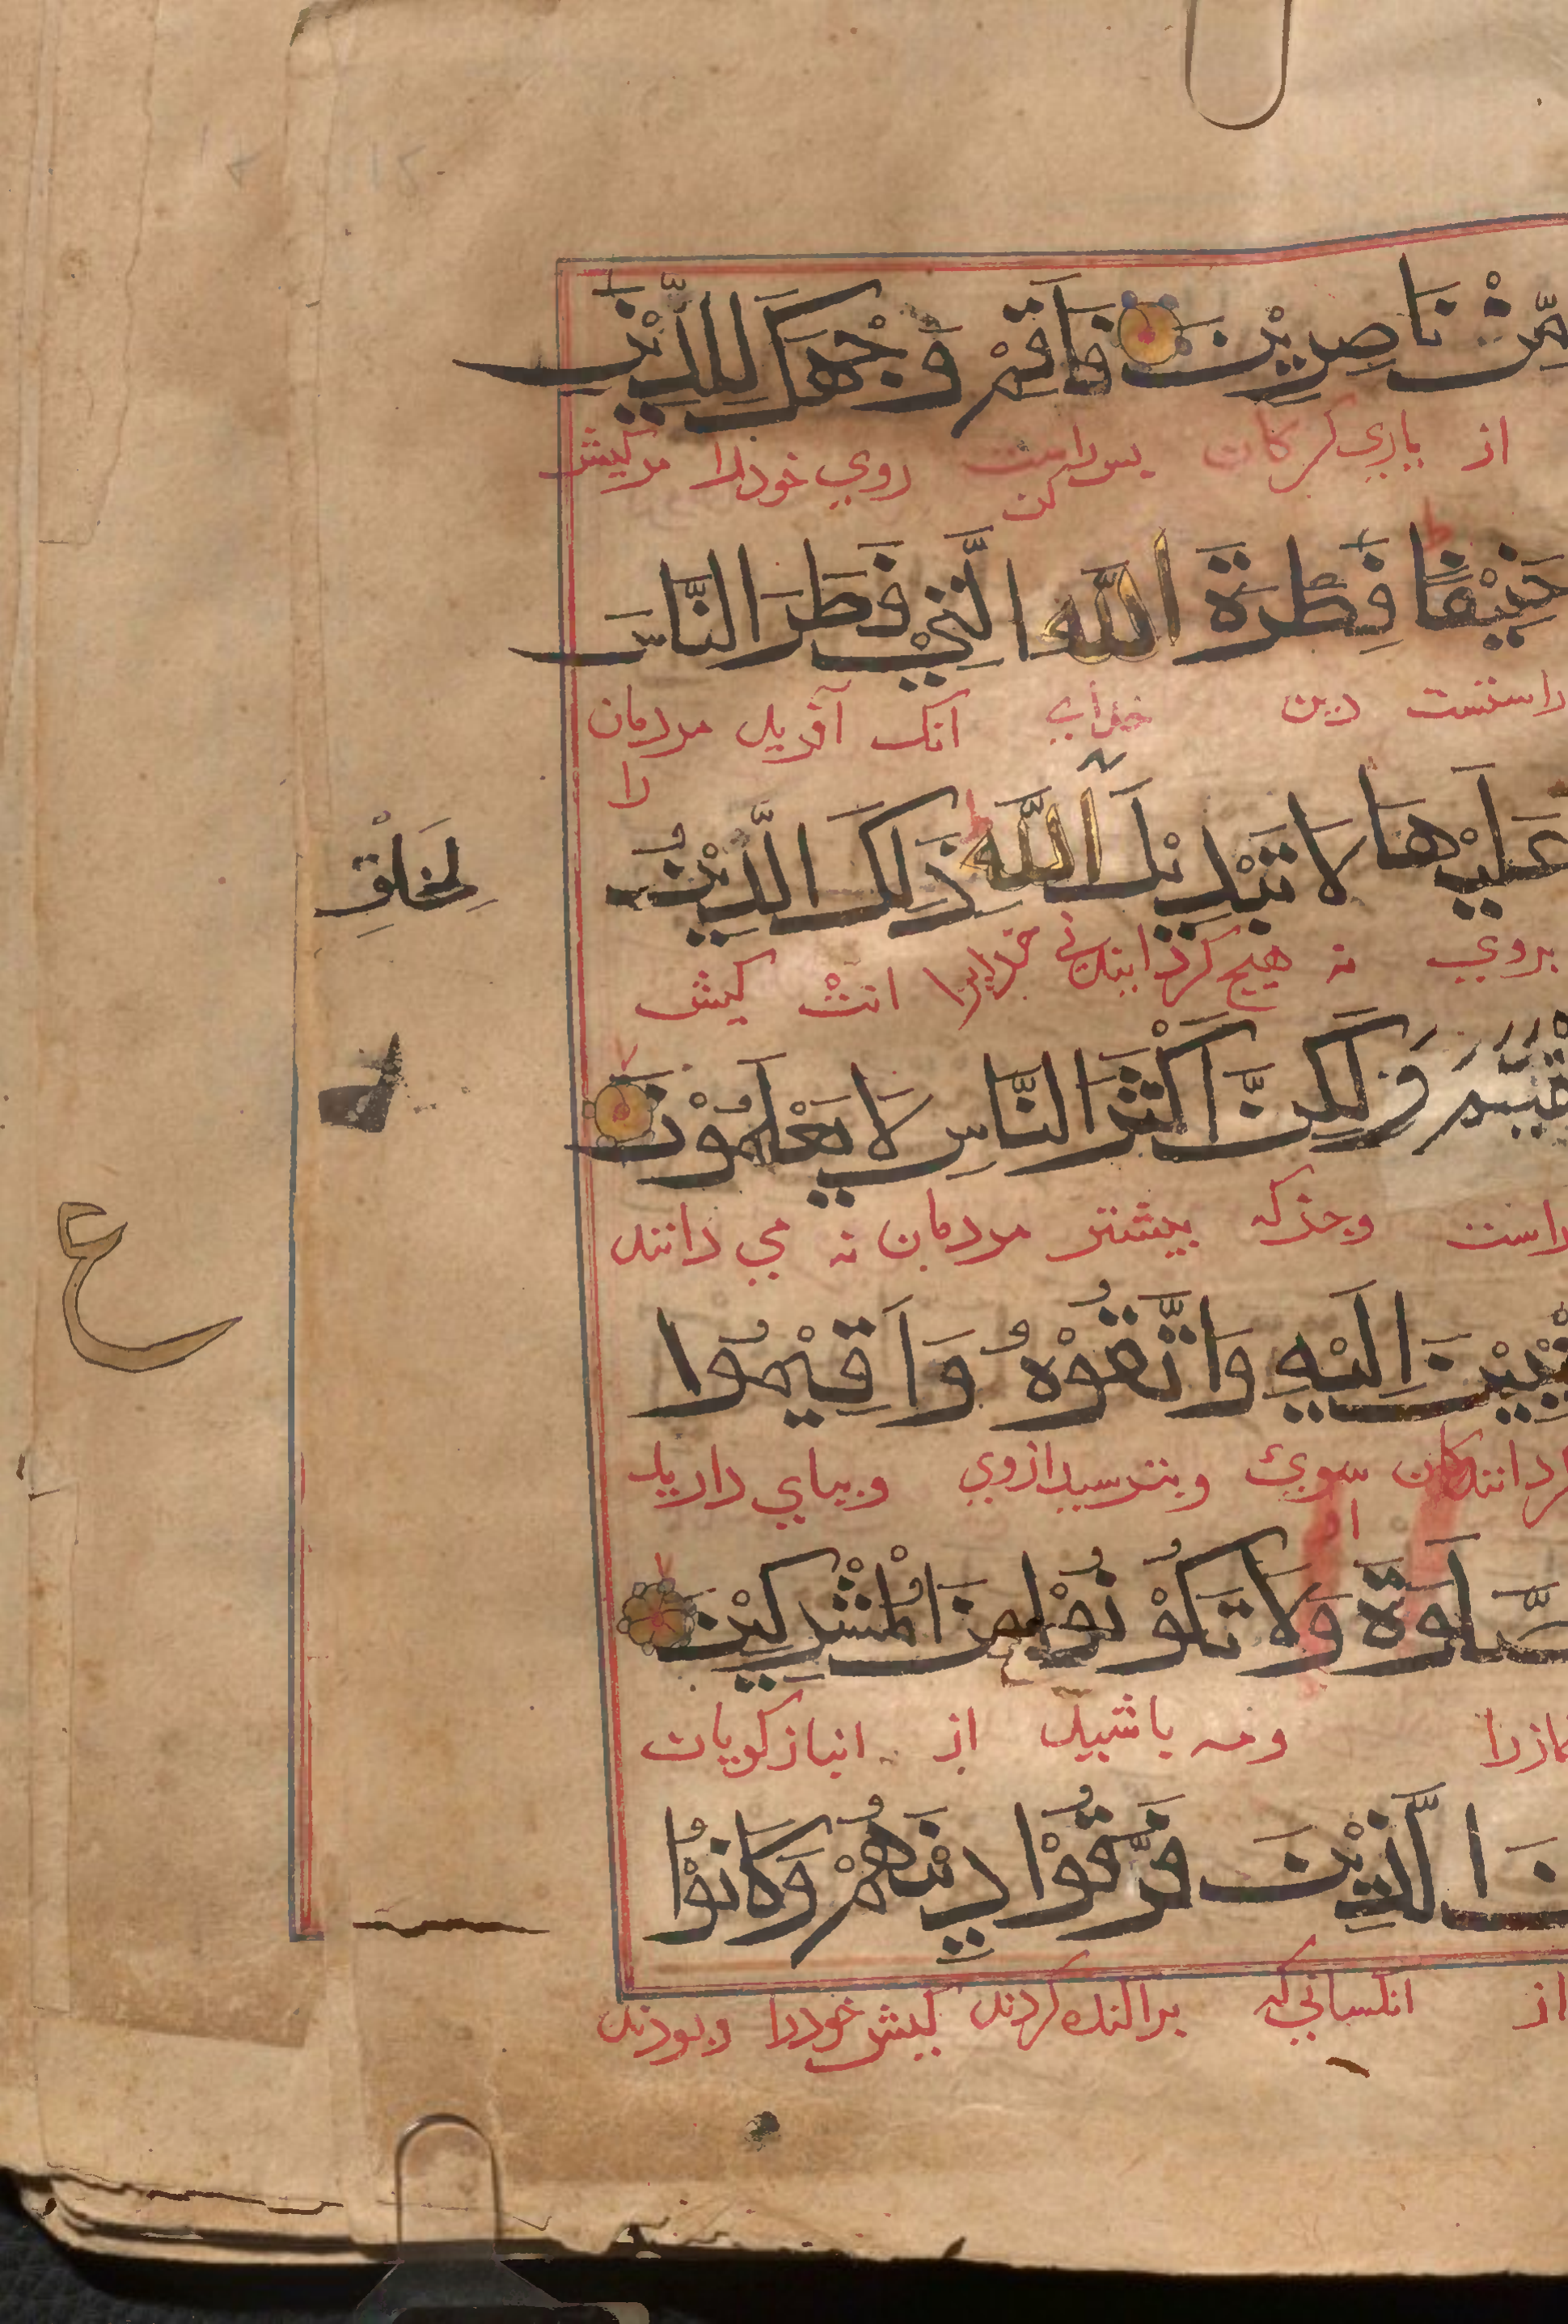 مِّنْ نَاصِرِيْنَ فَاَقِمْ وَجْهَكَ لِلدِّيْنِ
از ياري كركان بس راست روي خودرا مر كيش
كن
حَنِيْفًا فِطْرَةَ اللّٰهِ الَّتِيْ فَطَرَ النَّاسَ
راستست دين خداي انك آفريد مردمان
را
عَلَيْهَا لَا تَبْدِيْلَ اللّٰهِ ذٰلِكَ الدِّيْنُ
لِخَلْقِ
بروي نه هيچ خدايرا انست كيش
الْقَيِّمُ وَلٰكِنَّ اَكْثَرَ النَّاسِ لَا يَعْلَمُوْنَ
راست وجذكه بيشتر مردمان نه مي دانند
ع
مُنِيْبِيْنَ اِلَيْهِ وَاتَّقُوْهُ وَاَقِيْمُوا
سوي وبترسيد ازوي وبباي داريد
او
الصَّلٰوةَ وَلَا تَكُوْنُوْا مِنَ الْمُشْرِكِيْنَ
نمازرا ومه باشيد از انبازكويان
مِنَ الَّذِيْنَ فَرَّقُوْا دِيْنَهُمْ وَكَانُوْا
از انكساني كه براكنده كردند كيش خودرا وبودند